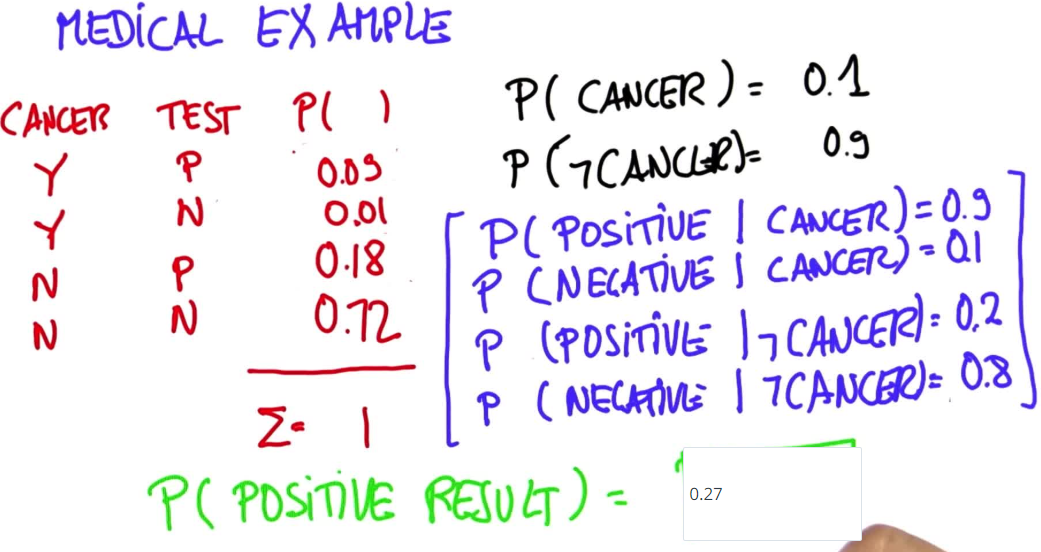 MEDICAL EXAMPLE
CANCER TEST P( )
Y P 0.09
Y N 0.01
N P 0.18
N N 0.72
Σ= 1
P( CANCER ) = 0.1
P (¬CANCER)= 0.9
P( POSITIVE | CANCER) = 0.9
P (NEGATIVE | CANCER) = 0.1
P (POSITIVE | ¬CANCER) = 0.2
P (NEGATIVE | ¬CANCER) = 0.8
P( POSITIVE RESULT ) = 0.27